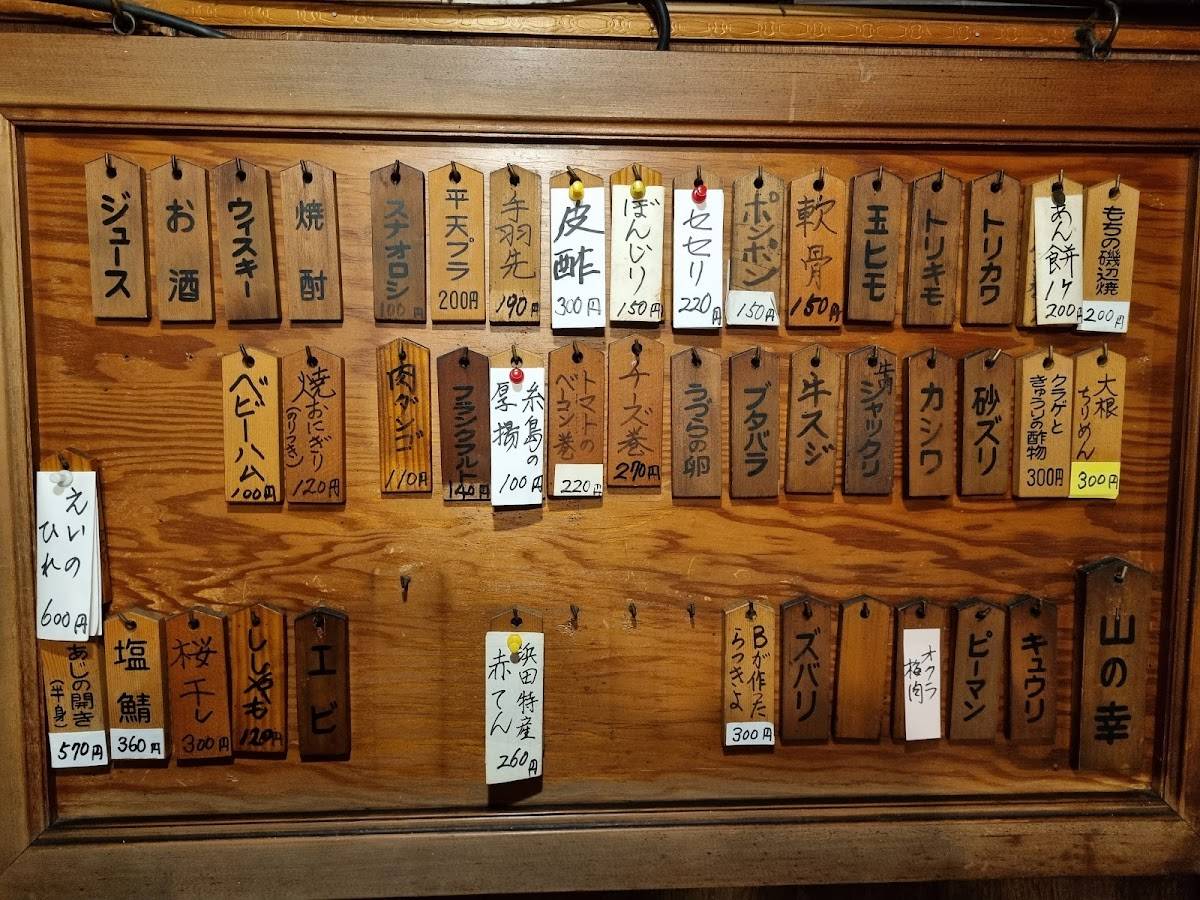 もちの磯辺焼
200円
あん餅1ケ
200円
トリカワ
トリキモ
玉ヒモ
軟骨
150円
ポンポン
150円
セセリ
220円
ぼんじり
150円
皮酢
300円
手羽先
190円
平天プラ
200円
スナオロシ
100円
焼酎
ウィスキー
お酒
ジュース
大根
ちりめん
300円
クラゲと
きゅうりの酢物
300円
砂ズリ
カシワ
牛肉
シャックリ
牛スジ
ブタバラ
うづらの卵
チーズ巻
270円
トマトの
ベーコン巻
220円
糸島の
厚揚
100円
フランクフルト
140円
肉ダンゴ
110円
焼おにぎり
(のりつき)
120円
ベビーハム
100円
山の幸
キュウリ
ピーマン
オクラ
豚肉
ズバリ
Bが作った
らっきょ
300円
浜田特産
赤てん
260円
エビ
ししゃも
120円
桜干し
300円
塩鯖
360円
えいの
ひれ
600円
あじの開き
(半身)
570円